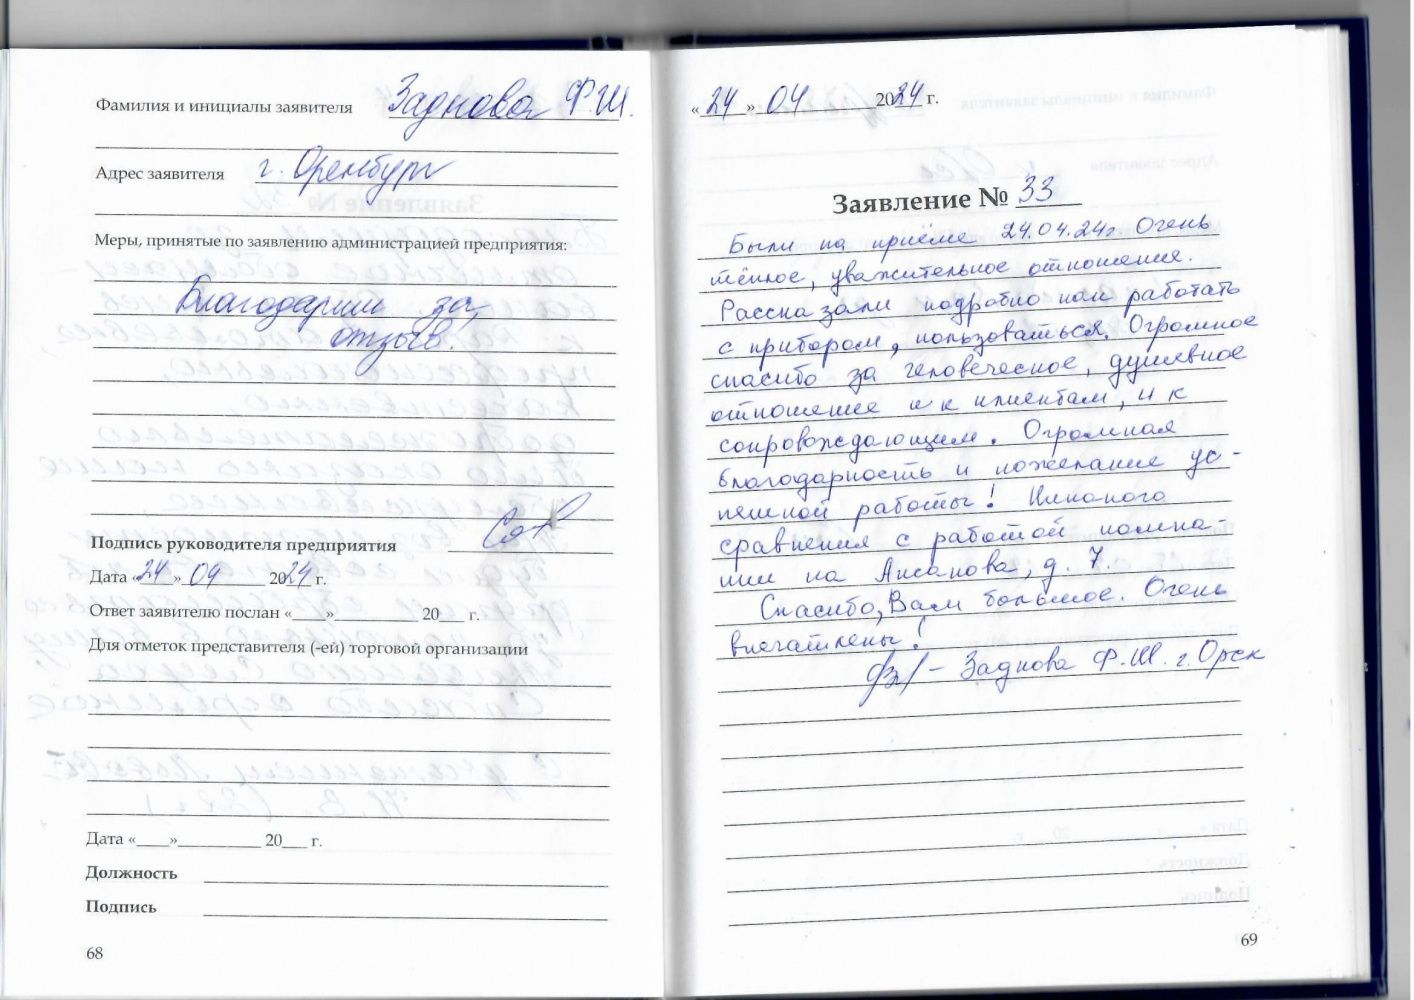 Фамилия и инициалы заявителя Заднова Ф.Ш.
Адрес заявителя г. Оренбург
Меры, принятые по заявлению администрацией предприятия:
Благодарим за
отзыв.
Подпись руководителя предприятия
Дата «24» 04 2024 г.
Ответ заявителю послан «____»__________ 20___ г.
Для отметок представителя (-ей) торговой организации
Дата «____»__________ 20___ г.
Должность
Подпись
68
«24» 04 2024 г.
Заявление № 33
Были на приёме 24.04.24г. Очень
тёплое, уважительное отношение.
Рассказали подробно как работать
с прибором, пользоваться. Огромное
спасибо за человеческое, душевное
отношение и к клиентам, и к
сопровождающим. Огромная
благодарность и пожелание ус-
пешной работы! Никакого
сравнения с работой компа-
нии на Аксакова, д. 7.
Спасибо, Вам большое. Очень
впечатлены!
– Заднова Ф.Ш. г. Орск
69